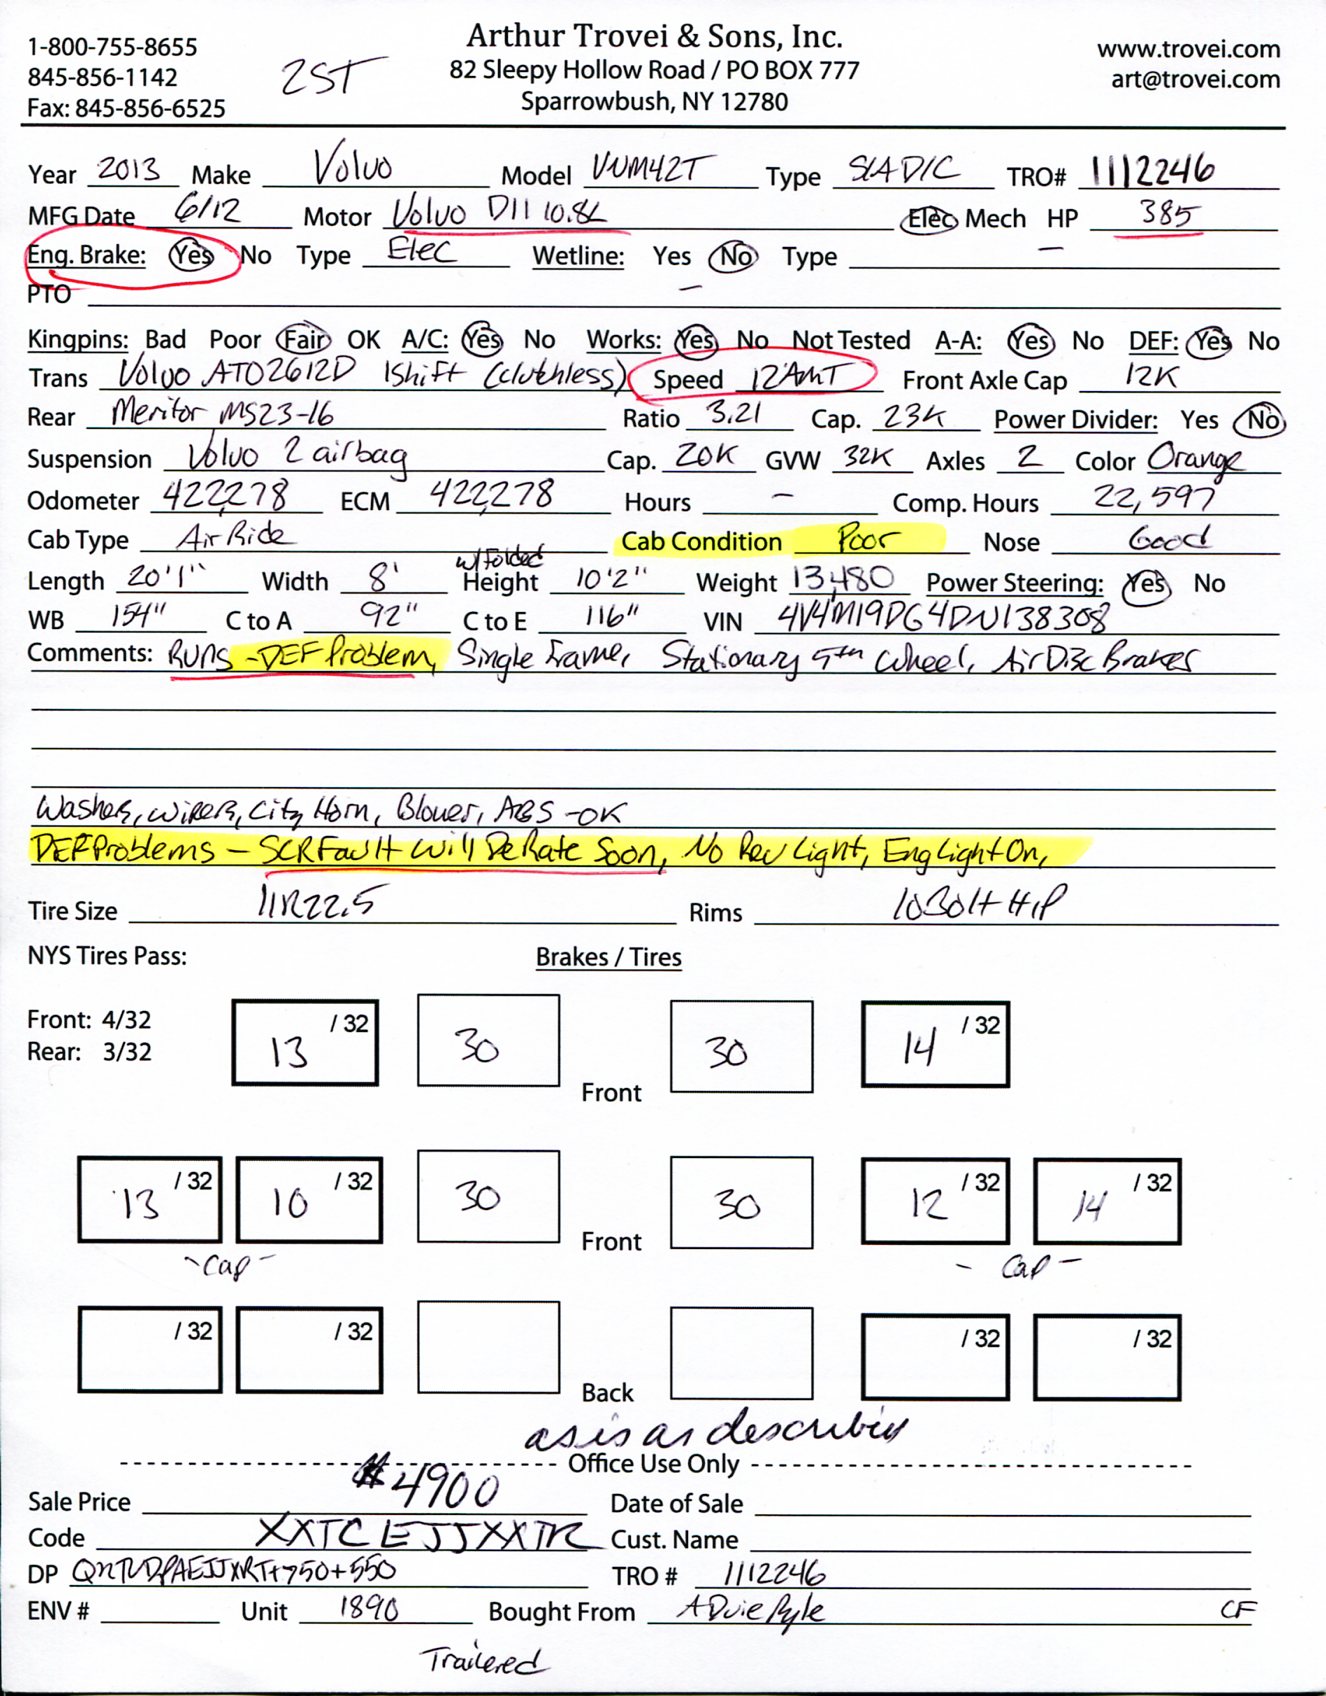 1-800-755-8655
845-856-1142
Fax: 845-856-6525
2ST
Arthur Trovei & Sons, Inc.
82 Sleepy Hollow Road / PO BOX 777
Sparrowbush, NY 12780
www.trovei.com
art@trovei.com
Year 2013 Make Volvo Model VNM42T Type S/A D/C TRO# 1112246
MFG Date 6/12 Motor Volvo D11 10.8L Elec Mech HP 385
Eng. Brake: Yes No Type Elec Wetline: Yes No Type
PTO
Kingpins: Bad Poor Fair OK A/C: Yes No Works: Yes No Not Tested A-A: Yes No DEF: Yes No
Trans Volvo ATO2612D IShift (clutchless) Speed 12 AMT Front Axle Cap 12K
Rear Meritor MS23-16 Ratio 3.21 Cap. 23K Power Divider: Yes No
Suspension Volvo 2 airbag Cap. 20K GVW 32K Axles 2 Color Orange
Odometer 422,278 ECM 422,278 Hours - Comp. Hours 22,597
Cab Type Air Ride Cab Condition Poor Nose Good
w/ Folded
Length 20'1" Width 8' Height 10'2" Weight 13,480 Power Steering: Yes No
WB 154" C to A 92" C to E 116" VIN 4V4M19DG4DN138308
Comments: Runs - DEF Problem, Single Frame, Stationary 5th Wheel, Air Disc Brakes
Washer, Wipers, City Horn, Blower, ABS - OK
DEF Problems - SCR Fault Will DeRate Soon, No Rev Light, Eng Light On,
Tire Size 11R22.5 Rims 10 Bolt H/P
NYS Tires Pass:
Brakes / Tires
Front: 4/32
Rear: 3/32
13 / 32 30 Front 30 14 / 32
13 / 32 10 / 32 30 Front 30 12 / 32 14 / 32
- Cap - - Cap -
/ 32 / 32 Back / 32 / 32
as is as described
Office Use Only
Sale Price $4900 Date of Sale
Code XXTCEJJXXTR Cust. Name
DP TRO # 1112246
ENV # Unit 1890 Bought From CF
Trailered